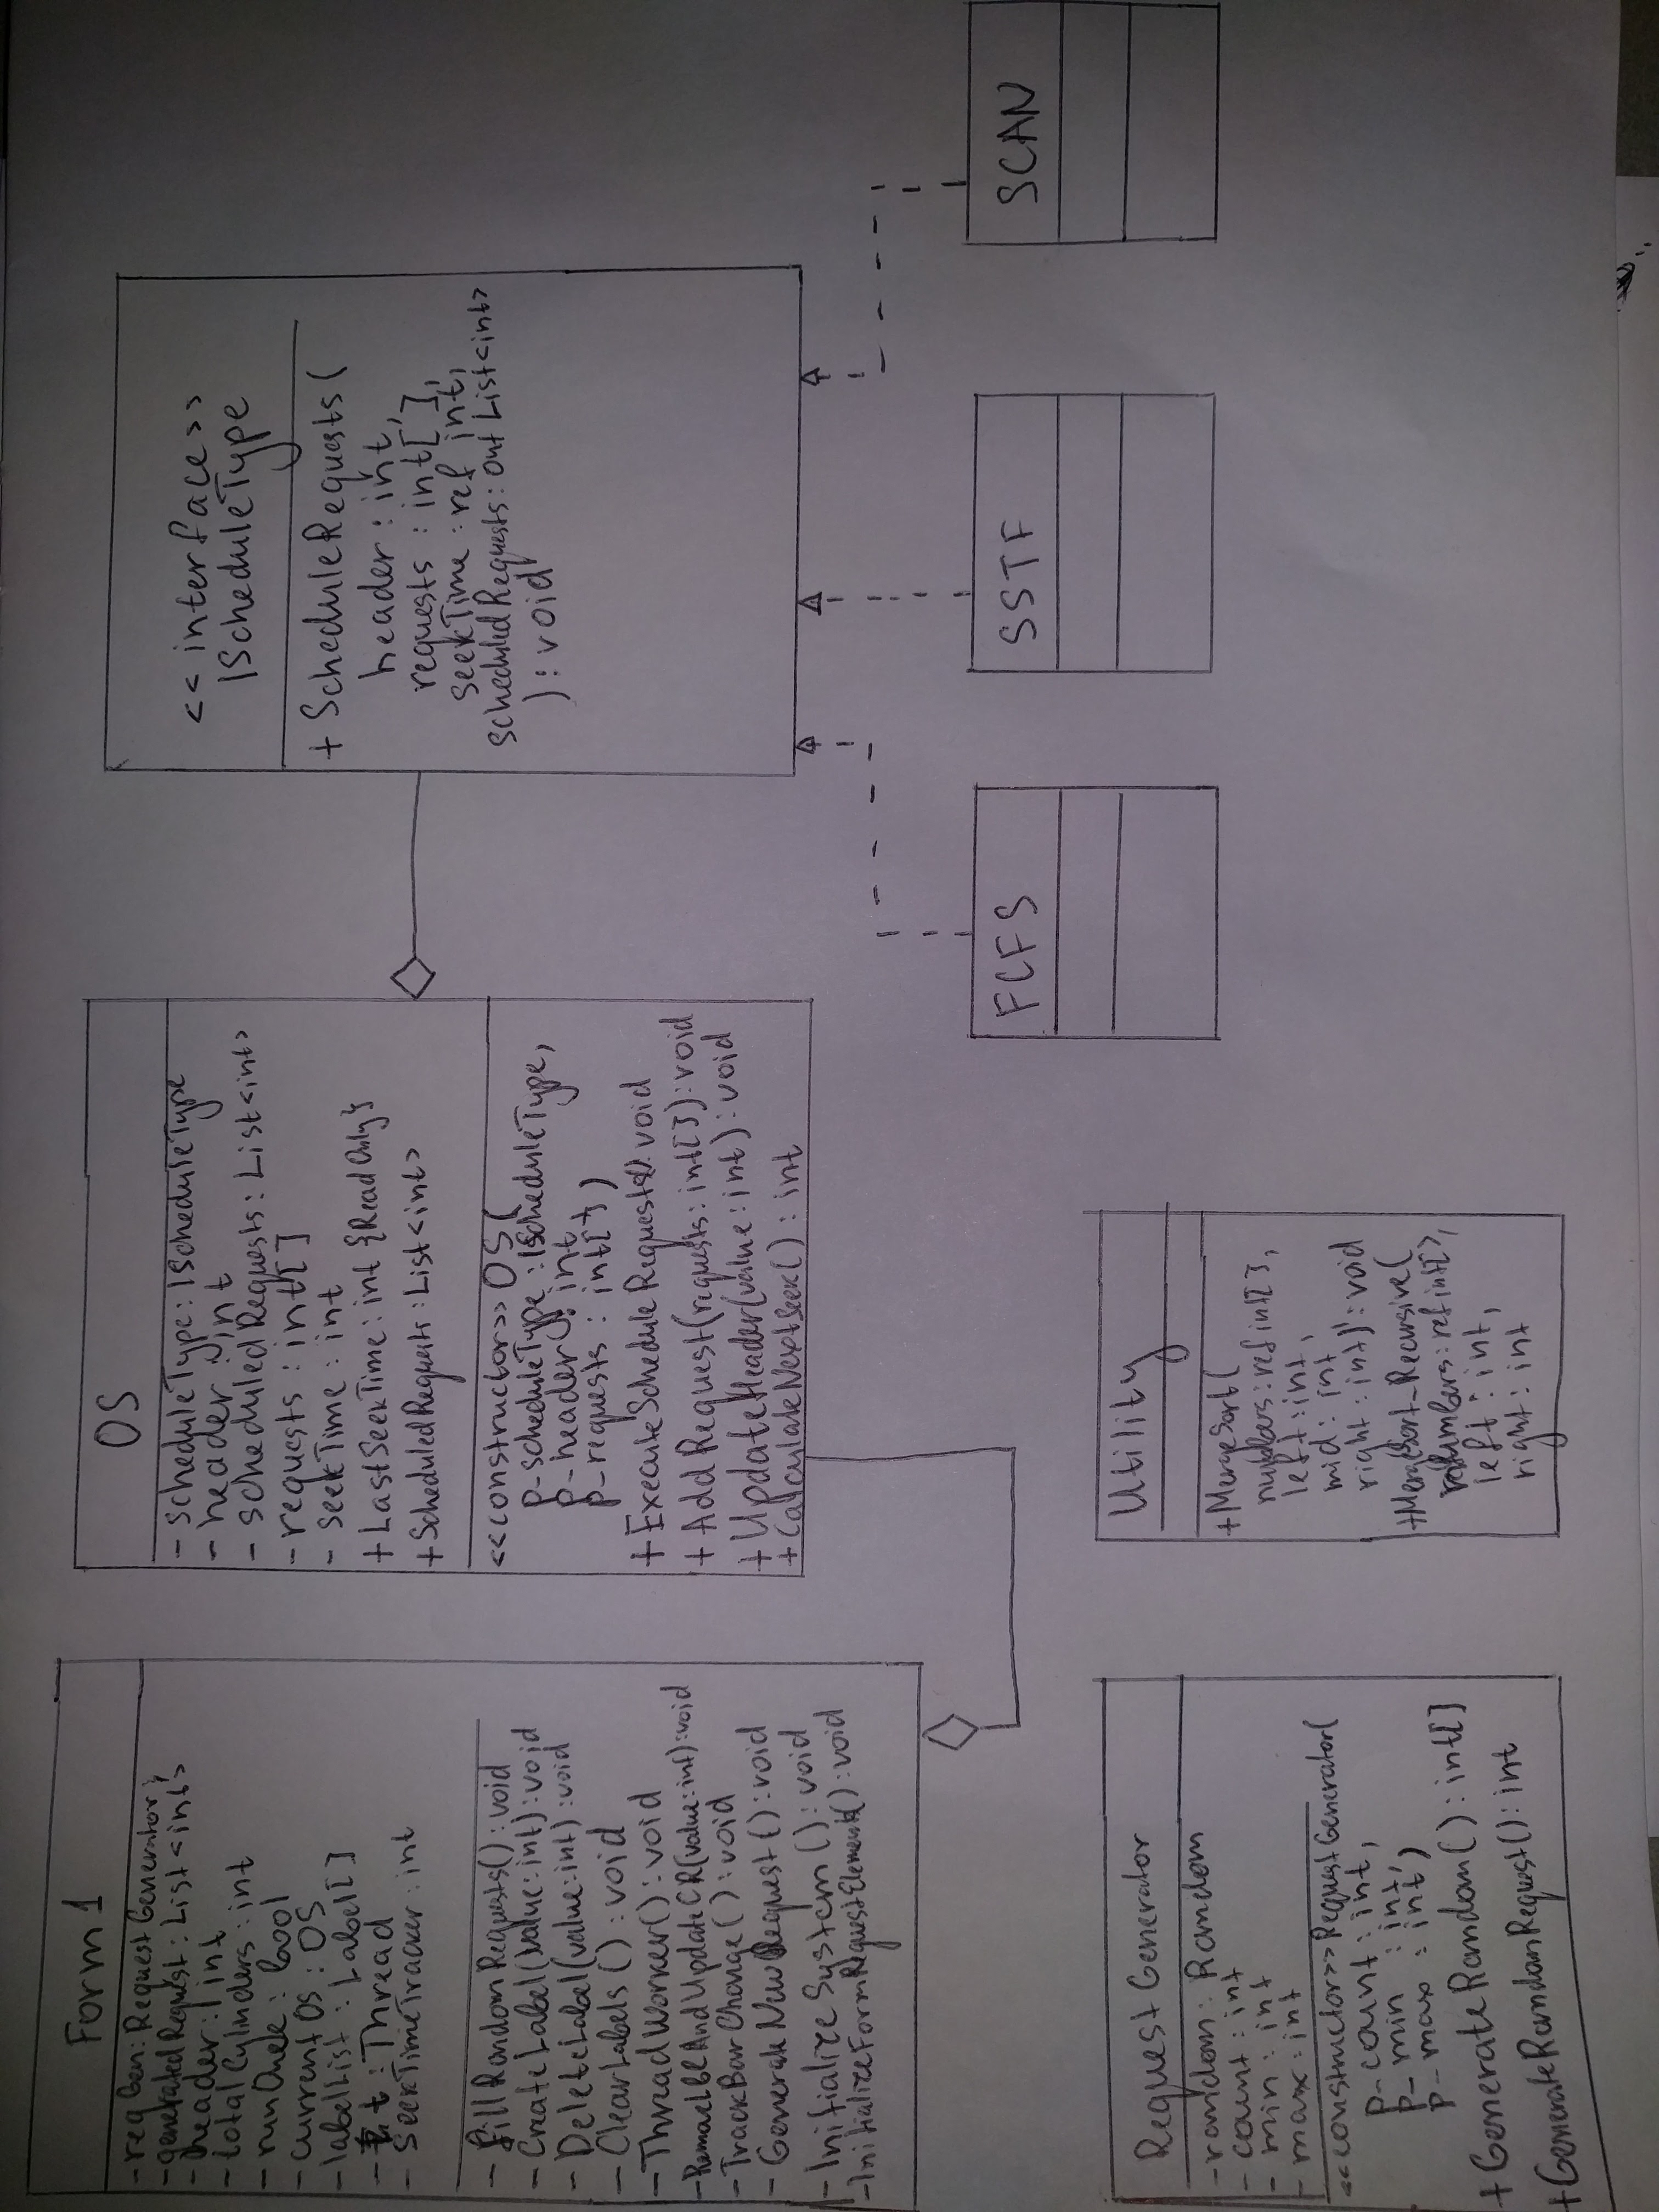 Form1
-reqGen: RequestGenerator;
-generatedRequest: List<int>
-header: int
-totalCylinders: int
-runOnce: bool
-currentOS: OS
-labelList: Label[]
-t: Thread
- SeekTimeTracker: int
- FillRandomRequests(): void
- CreateLabel(value: int): void
- DeleteLabel(value: int): void
- ClearLabels(): void
- ThreadWorker(): void
-RemoveLblAndUpdateCR(value: int): void
-TrackBarChange(): void
- GenerateNewRequest(): void
- InitializeSystem(): void
-InitializeFormRequestElements(): void
OS
- scheduleType: IScheduleType
- header: int
- scheduledRequests: List<int>
- requests: int[]
- seekTime: int
+ LastSeekTime: int {ReadOnly}
+ ScheduledRequests: List<int>
<<constructor>> OS(
p_scheduleType: IScheduleType,
p_header: int,
p_requests: int[])
+ ExecuteScheduleRequests(): void
+ AddRequest(requests: int[]): void
+ UpdateHeader(value: int): void
+ CalculateNextSeek(): int
<<interface>>
IScheduleType
+ ScheduleRequests(
header: int,
requests: int[],
seekTime: ref int,
scheduledRequests: out List<int>
): void
FCFS
SSTF
SCAN
RequestGenerator
-random: Random
- count: int
- min: int
- max: int
<<constructor>> RequestGenerator(
p_count: int,
p_min: int,
p_max: int)
+GenerateRandom(): int[]
+GenerateRandomRequest(): int
Utility
+MergeSort(
numbers: ref int[],
left: int,
mid: int
right: int): void
+MergeSort_Recursive(
numbers: ref int[],
left: int,
right: int